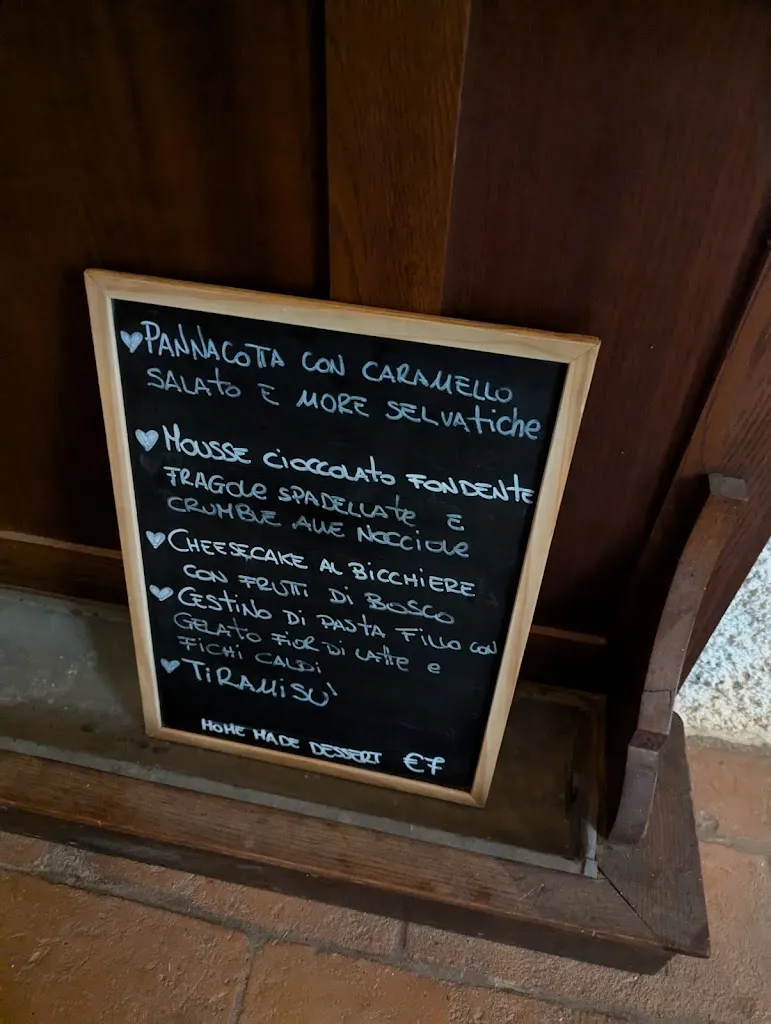 PANNACOTTA CON CARAMELLO
SALATO E MORE SELVATIChE
MOUSSE CIOCCOLATO FONDENTE
FRAGOLE SPADELLATE E
CRUMBLE ALLE NOCCIOLE
CHEESECAKE AL BICCHIERE
CON FRUTTI DI BOSCO
CESTINO DI PASTA FILLO CON
GELATO FIOR DI LATTE e
FICHI CALDI
TiRAMiSU'
HOME MADE DESSERT €7